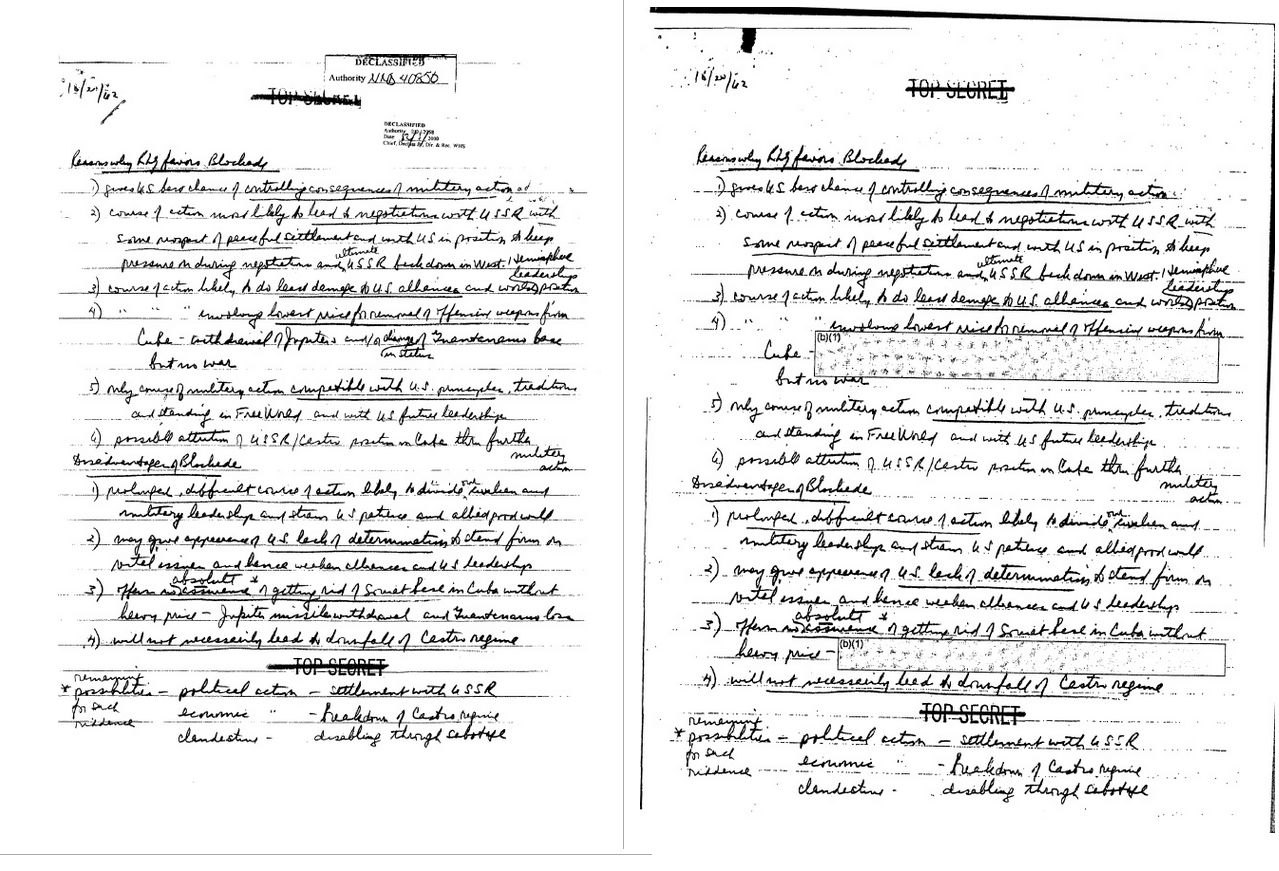 DECLASSIFIED
Authority NND 40850
10/20/62
TOP SECRET
DECLASSIFIED
Chief, Declass Br, Dir. & Rec. WHS
Reasons why RLG favors Blockade
1) gives US best chance of controlling consequences of military action
2) course of action most likely to lead to negotiations with USSR with
some prospect of peaceful settlement and with US in position to keep
pressure on during negotiation and ultimate USSR back down in West. Hemisphere
3) course of action likely to do least damage to US alliances and world position leadership
4) " " " involving lowest price for removal of offensive weapons from
Cuba - withdrawal of Jupiters and/or change of Guantanamo base
in status
but no war
5) only course of military action compatible with U.S. principles, traditions
and standing in Free World and with US future leadership
6) possible attrition of USSR/Castro position in Cuba thru further
military
action
Disadvantages of Blockade
1) prolonged, difficult course of action likely to divide our civilian and
military leadership and strain US patience and allied good will
2) may give appearance of US lack of determination to stand firm on
vital issues and hence weaken alliances and US leadership
3) offers no absolute assurance * of getting rid of Soviet base in Cuba without
heavy price - Jupiter missile withdrawal and Guantanamo loss
4) will not necessarily lead to downfall of Castro regime
TOP SECRET
remaining
* possibilities - political action - settlement with USSR
for such economic " - breakdown of Castro regime
riddance clandestine - disabling through sabotage
10/20/62
TOP SECRET
Reasons why RLG favors Blockade
1) gives US best chance of controlling consequences of military action
2) course of action most likely to lead to negotiations with USSR with
some prospect of peaceful settlement and with US in position to keep
pressure on during negotiation and ultimate USSR back down in West. Hemisphere
3) course of action likely to do least damage to U.S. alliances and world position leadership
4) " " " involving lowest price for removal of offensive weapons from
Cuba - (b)(1)
but no war
5) only course of military action compatible with U.S. principles, traditions
and standing in Free World and with US future leadership
6) possible attrition of USSR/Castro position in Cuba thru further
military
action
Disadvantages of Blockade
1) prolonged, difficult course of action likely to divide our civilian and
military leadership and strain US patience and allied good will
2) may give appearance of US lack of determination to stand firm on
vital issues and hence weaken alliances and US leadership
3) offers no absolute assurance * of getting rid of Soviet base in Cuba without
heavy price - (b)(1)
4) will not necessarily lead to downfall of Castro regime
TOP SECRET
remaining
* possibilities - political action - settlement with USSR
for such economic " - breakdown of Castro regime
riddance clandestine - disabling through sabotage